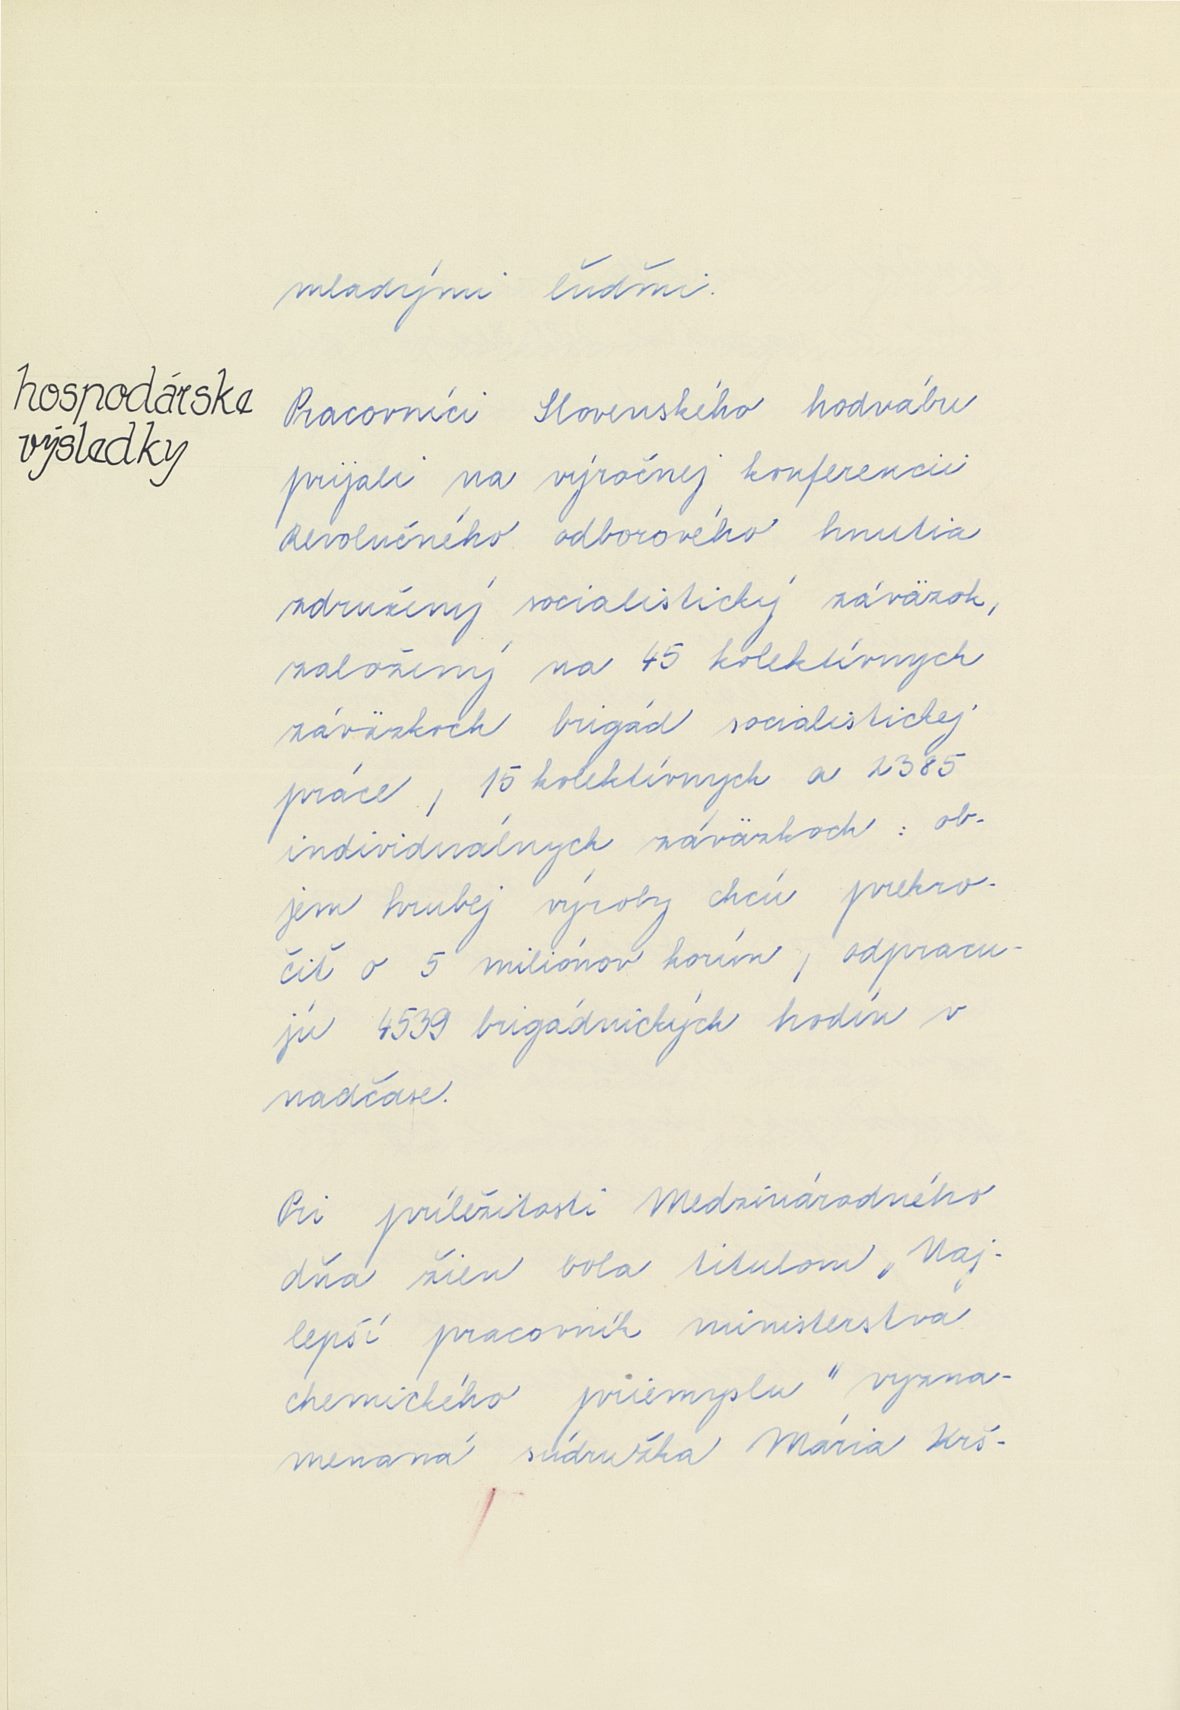 mladými ľuďmi.
hospodárske
výsledky
Pracovníci Slovenského hodvábu
prijali na výročnej konferencii
Revolučného odborového hnutia
združený socialistický záväzok,
založený na 45 kolektívnych
záväzkoch brigád socialistickej
práce, 15 kolektívnych a 2385
individuálnych záväzkoch: ob-
jem hrubej výroby chcú prekro-
čiť o 5 miliónov korún, odpracu-
jú 4539 brigádnických hodín v
nadčase.
Pri príležitosti Medzinárodného
dňa žien bola titulom „Naj-
lepší pracovník ministerstva
chemického priemyslu" vyzna-
menaná súdružka Mária Krš-